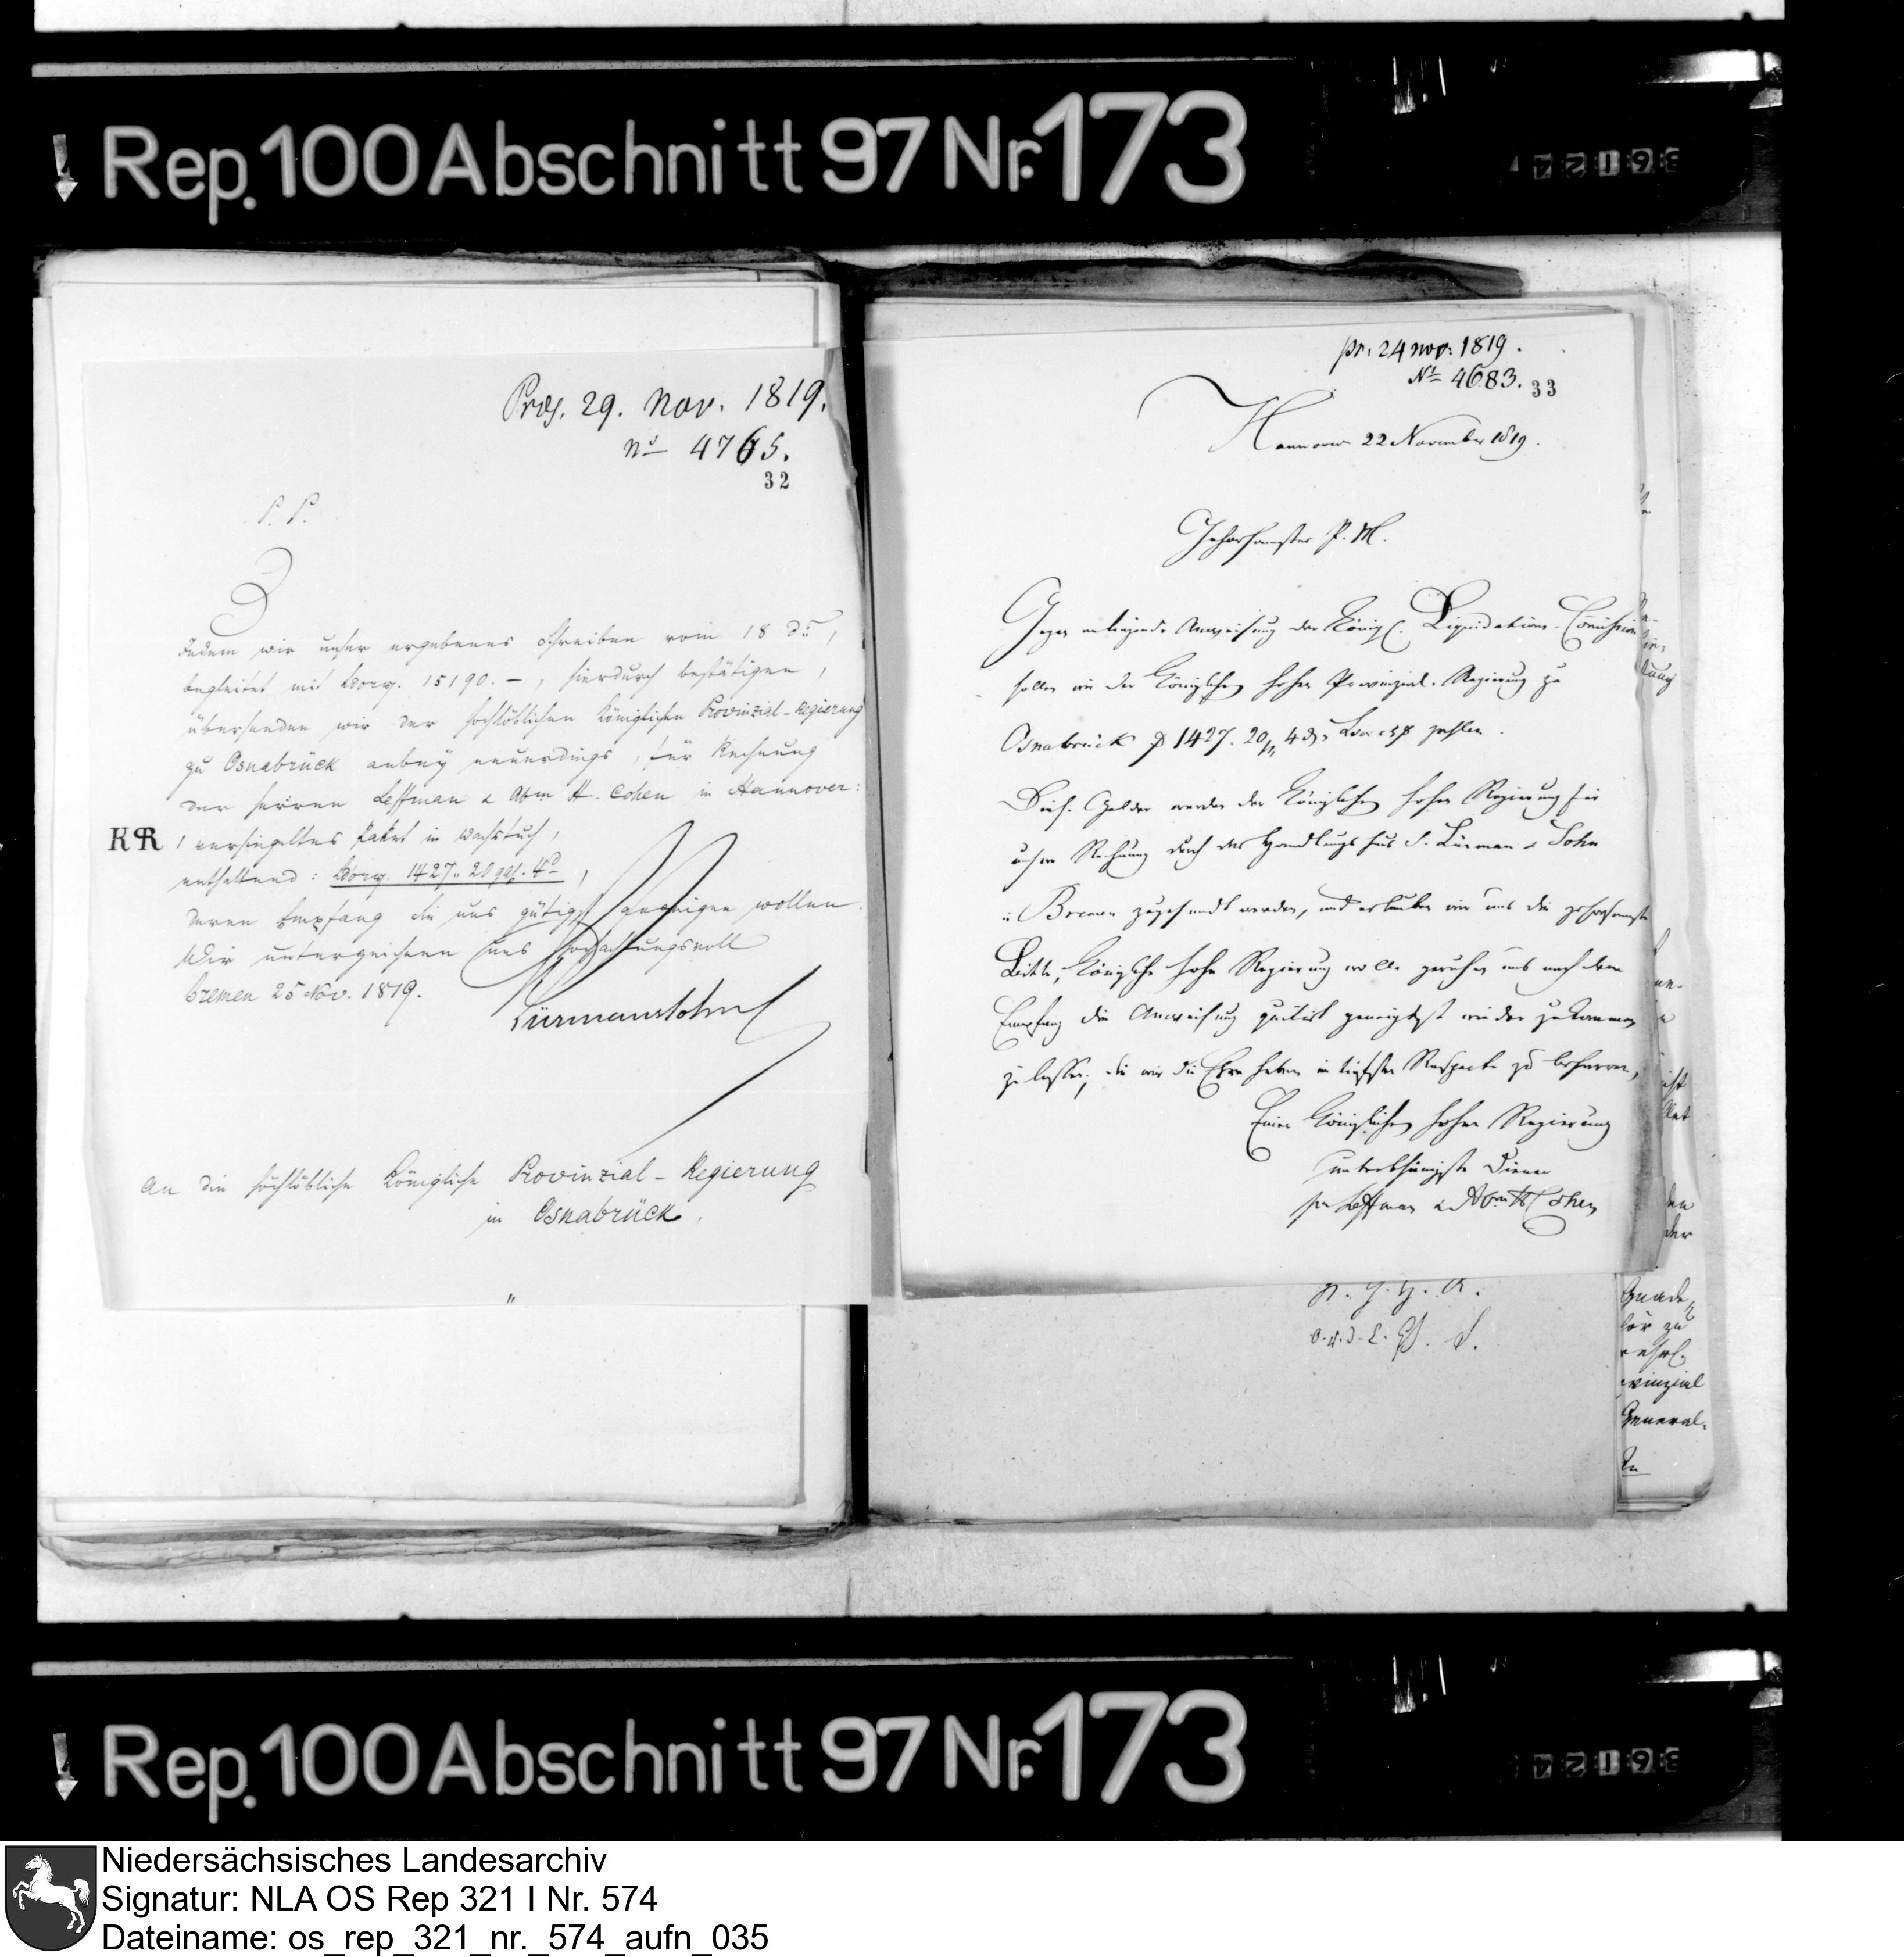 Rep. 100 Abschnitt 97 Nr. 173
Præs. 29. Nov. 1819.
No 4765.
32
P. P.
Indem wir unser ergebenes Schreiben vom 18 ds,
begleitet mit Louisd. 15190. –, hierdurch bestätigen,
übersenden wir der hochlöblichen Königlichen Provinzial-Regierung
zu Osnabrück anbey neuerdings, für Rechnung
der Herren Leffman & Abm H. Cohen in Hannover:
KR 1 versiegeltes Paket in Wachstuch,
enthaltend: 1427. 20 ggl. 4 d,
deren Empfang Sie uns gütigst anzeigen wollen.
Wir unterzeichnen uns hochachtungsvoll
Bremen 25 Nov. 1819.
Lürman & Sohn
An die hochlöbliche Königliche Provinzial-Regierung
in Osnabrück.
pr. 24 Nov. 1819.
No 4683. 33
Hannover 22 November 1819.
Gehorsamster P. M.
Gegen anliegende Anweisung der Königl. Liquidations-Commission
sollen wir der Königlichen hohen Provinzial-Regierung zu
Osnabrück 1427. 20 4 zahlen.
Diese Gelder werden der Königlichen hohen Regierung für
unsere Rechnung durch das Handlungshaus S. Lürman & Sohn
in Bremen zugesandt werden, und erlauben wir uns die gehorsamste
Bitte, Königliche hohe Regierung wolle geruhen uns nach dem
Empfang die Anweisung quitirt geneigtest wieder zukommen
zu lassen, die wir die Ehre haben in tiefstem Respecte zu beharren,
Einer Königlichen hohen Regierung
unterthänigste Diener
pr Leffman & Abm H Cohen
Gnade
General-
Rep. 100 Abschnitt 97 Nr. 173
Niedersächsisches Landesarchiv
Signatur: NLA OS Rep 321 I Nr. 574
Dateiname: os_rep_321_nr._574_aufn_035